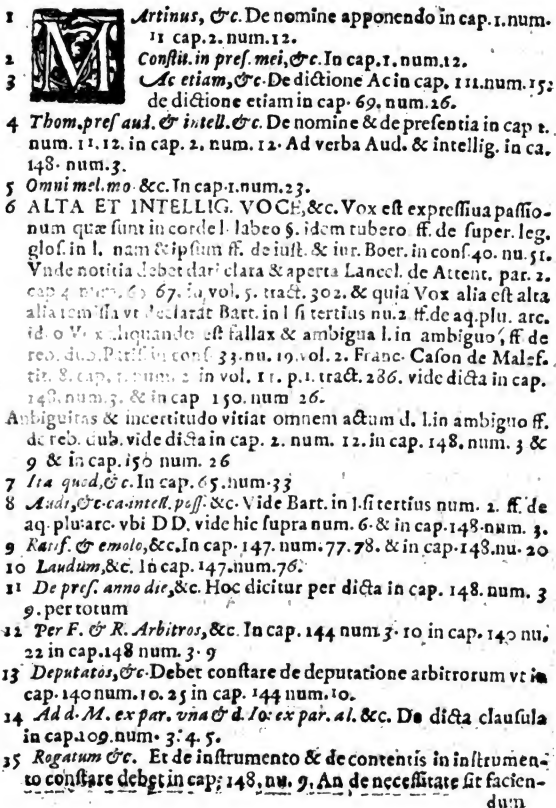 1 MArtinus, &c. De nomine apponendo in cap. 1. num.
11 cap. 2. num. 12.
2 Constit. in pres. mei, &c. In cap. 1. num. 12.
3 Ac etiam, &c. De dictione Ac in cap. 111. num. 15:
de dictione etiam in cap. 69, num. 26.
4 Thom. pres aud. & intell. &c. De nomine & de presentia in cap 1.
num. 11. 12. in cap. 2. num. 12. Ad verba Aud. & intellig. in ca.
148. num. 3.
5 Omni mel. mo. &c. In cap. 1. num. 23.
6 ALTA ET INTELLIG. VOCE, &c. Vox est expressiua passio-
num quæ sunt in corde l. labeo §. idem tubero ff. de super. leg.
glos. in l. nam & ipsum ff. de iust. & iur. Boer. in cons. 40. nu. 51.
Vnde notitia debet dari clara & aperta Lancel. de Attent. par. 2.
cap 4 num. 60 67. in vol. 5. tract. 302. & quia Vox alia est alta
alia remissa vt declarat Bart. in l si tertius nu. 2 ff. de aq. plu. arc.
ideo Vox aliquando est fallax & ambigua l. in ambiguo, ff de
reb. dub. Paris. in cons. 33. nu. 19. vol. 2. Franc. Cason de Malef.
tit. 8. cap. 1. num. 2 in vol. 11. p. 1. tract. 286. vide dicta in cap.
148. num. 3. & in cap 150. num 26.
Ambiguitas & incertitudo vitiat omnem actum d. l. in ambiguo ff.
de reb. dub. vide dicta in cap. 2. num. 12. in cap. 148. num. 3 &
9 & in cap. 150 num. 26
7 Ita quod, &c. In cap. 65. num. 33
8 Audi, &c. ca. intell. poss. &c. Vide Bart. in l. si tertius num. 2. ff. de
aq. plu. arc. vbi DD. vide hic supra num. 6. & in cap. 148. num. 3.
9 Ratif. & emolo, &c. In cap. 147. num. 77. 78. & in cap. 148. nu. 20
10 Laudum, &c. In cap. 147. num. 76.
11 De pres. anno die, &c. Hoc dicitur per dicta in cap. 148. num. 3
9. per totum
12 Per F. & R. Arbitros, &c. In cap. 144 num 3. 10 in cap. 140 nu.
22 in cap. 148 num. 3. 9
13 Deputatos, &c. Debet constare de deputatione arbitrorum vt in
cap. 140 num. 10. 25 in cap. 144 num. 10.
14 Ad d. M. ex par. vna & d. Io: ex par. al. &c. De dicta clausula
in cap. 109. num. 3. 4. 5.
15 Rogatum &c. Et de instrumento & de contentis in instrumen-
to constare debet in cap. 148. nu. 9. An de necessitate sit facien-
dum